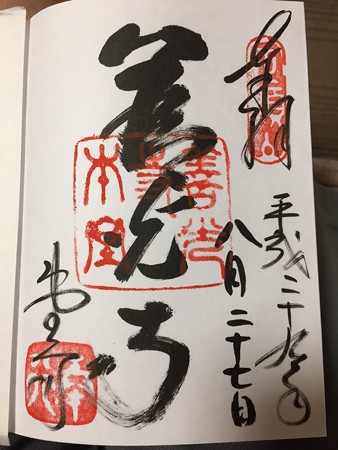 奉拝
平成二十九年
八月二十七日
善光寺
善光
本堂